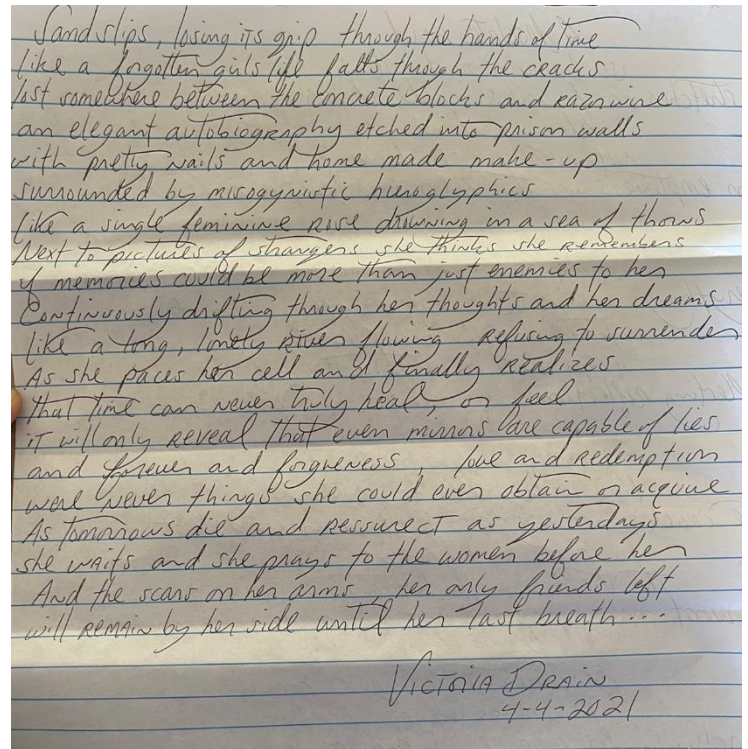 Sand slips, losing its grip through the hands of time
like a forgotten girls life falls through the cracks
lost somewhere between the concrete blocks and razorwire
an elegant autobiography etched into prison walls
with pretty nails and home made make-up
surrounded by misogynistic hieroglyphics
like a single feminine rose drowning in a sea of thorns
Next to pictures of strangers she thinks she remembers
if memories could be more than just enemies to her
Continuously drifting through her thoughts and her dreams
like a long, lonely river flowing refusing to surrender
As she paces her cell and finally realizes
that time can never truly heal, or feel
it will only reveal that even mirrors are capable of lies
and forever and forgiveness, love and redemption
were never things she could ever obtain or acquire
As tomorrows die and ressurect as yesterdays
she waits and she prays to the women before her
And the scars on her arms, her only friends left
will remain by her side until her last breath...
Victoria Drain
4-4-2021